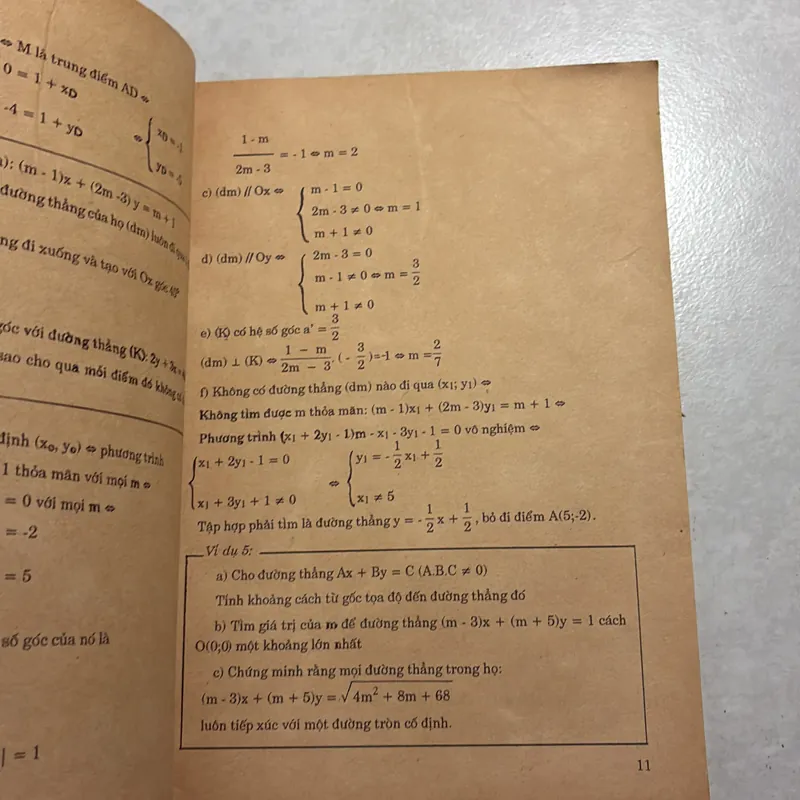 ⇔ M là trung điểm AD ⇔
0 = 1 + xD
-4 = 1 + yD ⇔ { xD = -1
yD = -5
): (m - 1)x + (2m -3) y = m + 1
đường thẳng của họ (dm) luôn đi qua
ng đi xuống và tạo với Ox góc
góc với đường thẳng (K): 2y + 3x =
sao cho qua mỗi điểm đó không
định (x₀, y₀) ⇔ phương trình
1 thỏa mãn với mọi m ⇔
= 0 với mọi m ⇔
= -2
= 5
số góc của nó là
| = 1
1 - m
/ (2m - 3) = - 1 ⇔ m = 2
c) (dm) // Ox ⇔ { m - 1 = 0
2m - 3 ≠ 0 ⇔ m = 1
m + 1 ≠ 0
d) (dm) // Oy ⇔ { 2m - 3 = 0
m - 1 ≠ 0 ⇔ m = 3/2
m + 1 ≠ 0
e) (K) có hệ số góc a' = 3/2
(dm) ⊥ (K) ⇔ (1 - m)/(2m - 3) . ( - 3/2 ) = -1 ⇔ m = 2/7
f) Không có đường thẳng (dm) nào đi qua (x₁; y₁) ⇔
Không tìm được m thỏa mãn: (m - 1)x₁ + (2m - 3)y₁ = m + 1 ⇔
Phương trình (x₁ + 2y₁ - 1)m - x₁ - 3y₁ - 1 = 0 vô nghiệm ⇔
{ x₁ + 2y₁ - 1 = 0 ⇔ { y₁ = - 1/2 x₁ + 1/2
x₁ + 3y₁ + 1 ≠ 0 x₁ ≠ 5
Tập hợp phải tìm là đường thẳng y = - 1/2 x + 1/2 , bỏ đi điểm A(5;-2).
Ví dụ 5:
a) Cho đường thẳng Ax + By = C (A.B.C ≠ 0)
Tính khoảng cách từ gốc tọa độ đến đường thẳng đó
b) Tìm giá trị của m để đường thẳng (m - 3)x + (m + 5)y = 1 cách
O(0;0) một khoảng lớn nhất
c) Chứng minh rằng mọi đường thẳng trong họ:
(m - 3)x + (m + 5)y = √(4m² + 8m + 68)
luôn tiếp xúc với một đường tròn cố định.
11